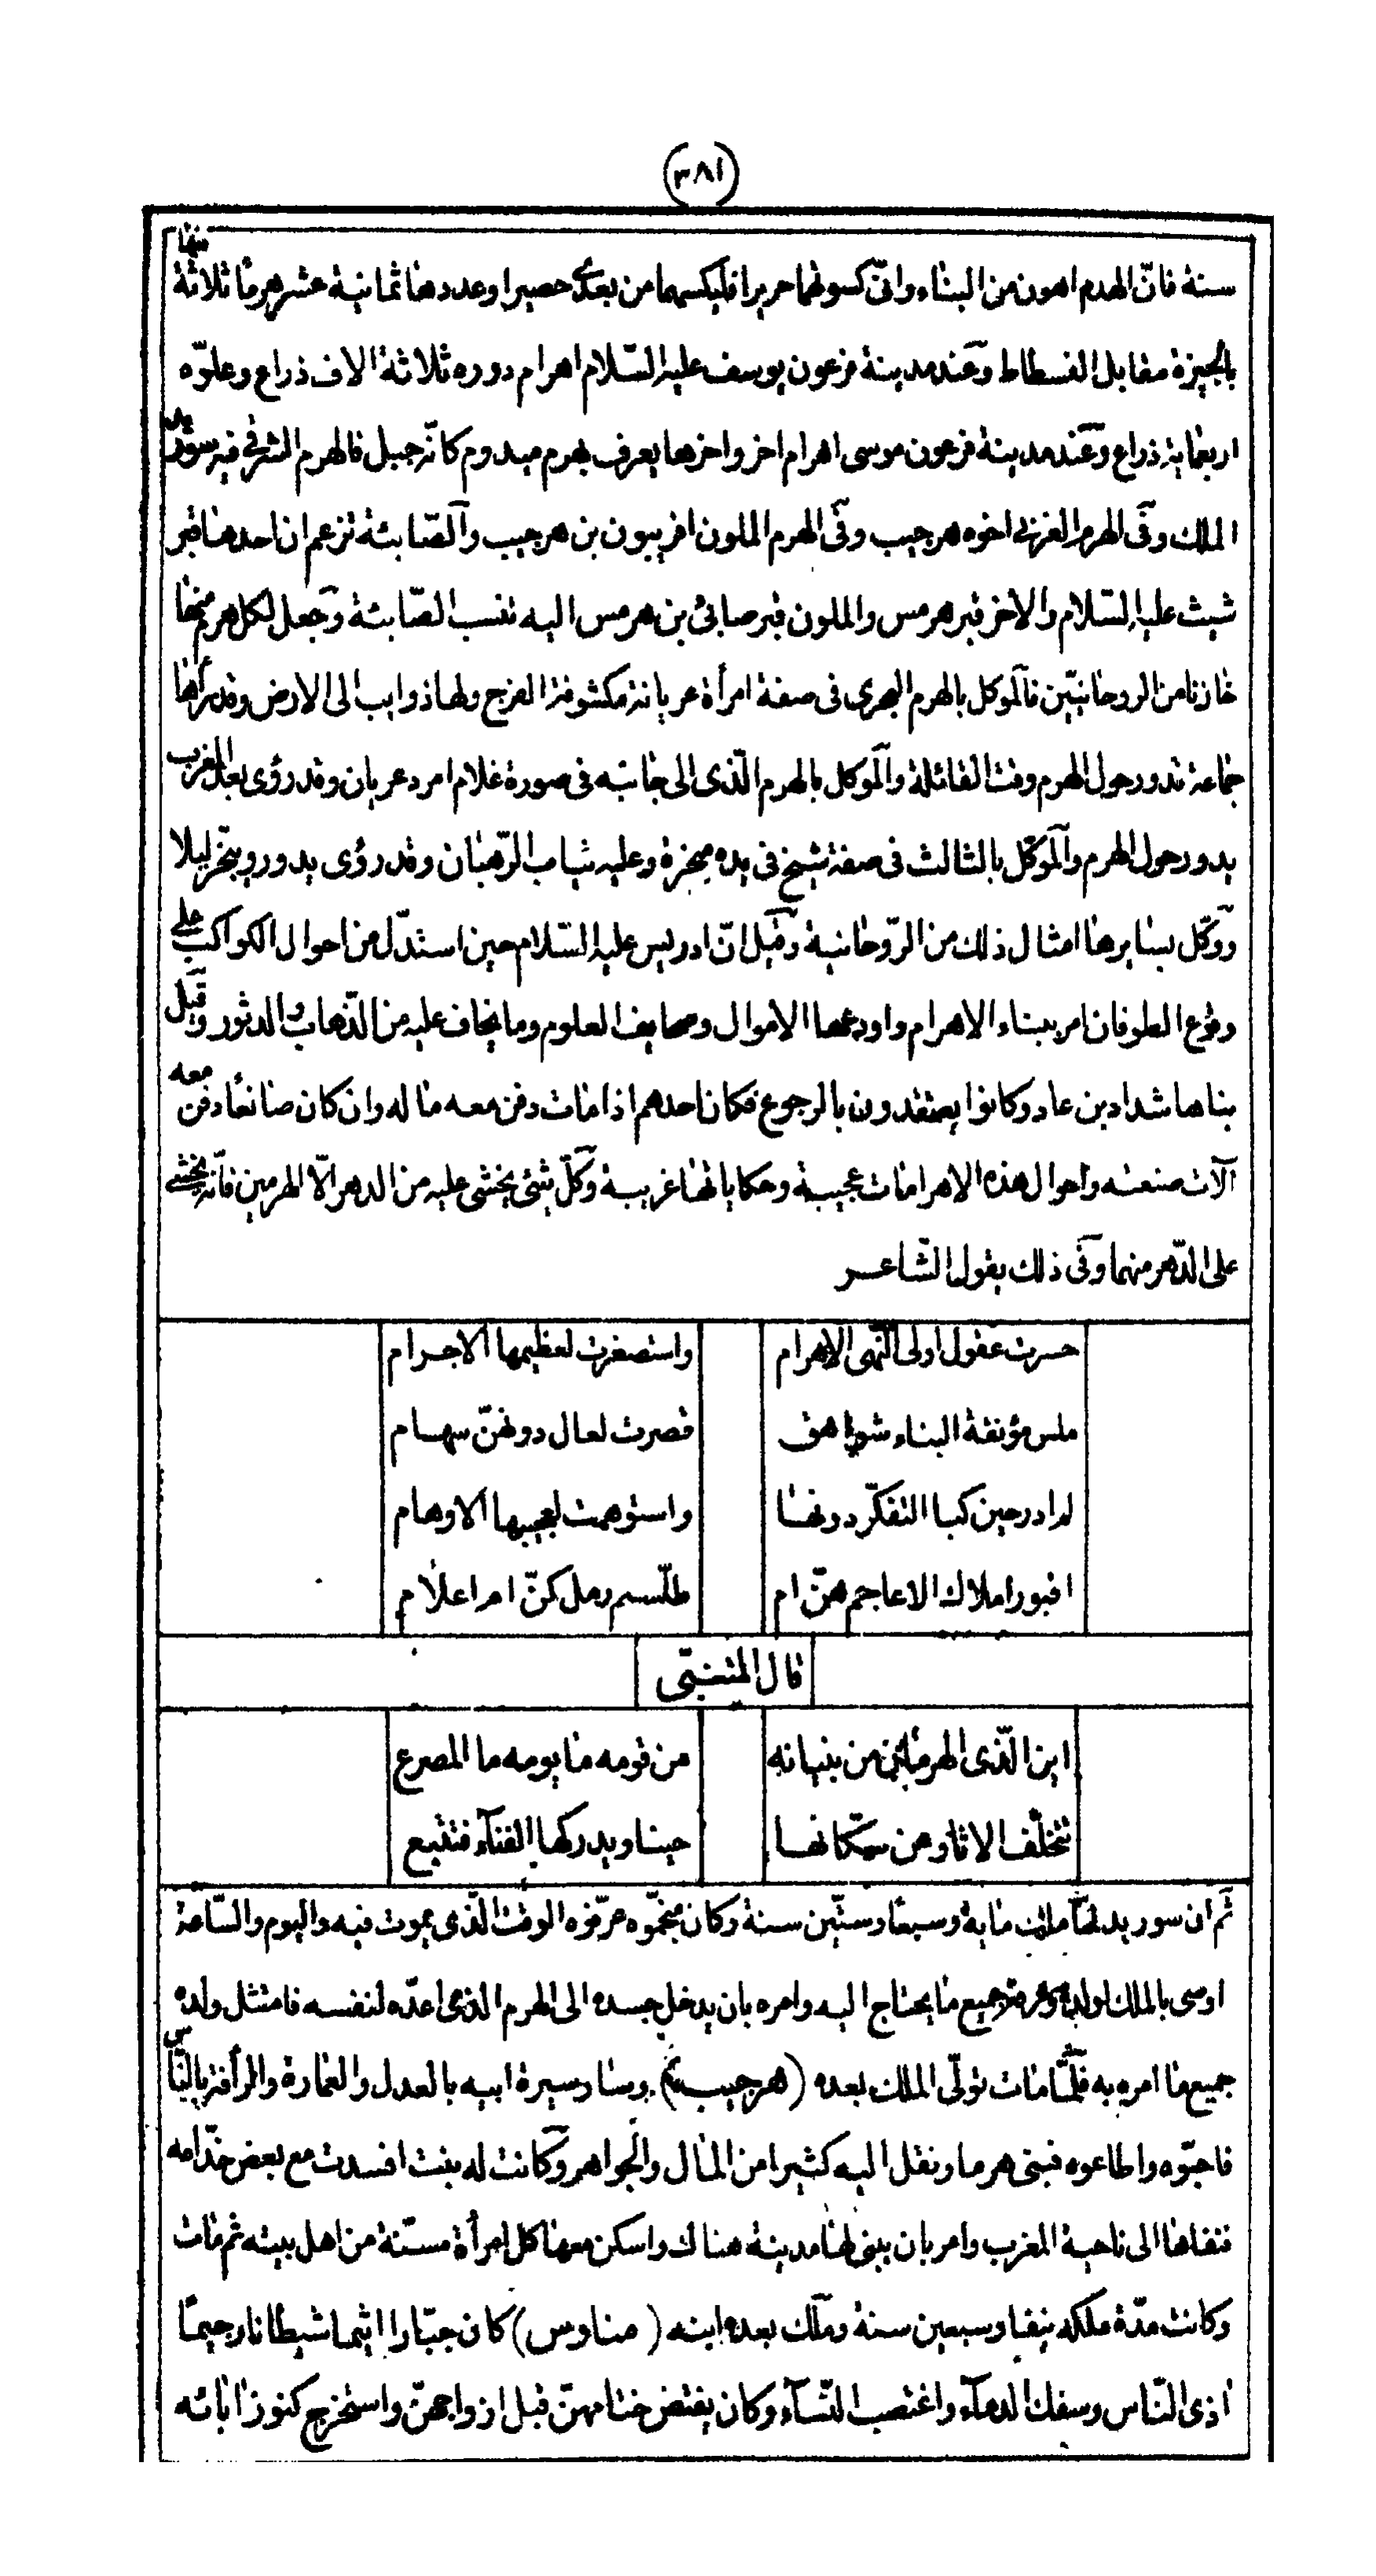 (٣٨١)
سنة فانّ الهدم اهون من البناء وانّى كسوتهما حريرا فليكسهما من بعدى حصيرا وعددها ثمانية عشر هرمًا ثلاثة منها
بالجيزة مقابل الفسطاط وعند مدينة فرعون يوسف عليه السّلام اهرام دوره ثلاثة الاف ذراع وعلوّه
اربعماية ذراع وعند مدينة فرعون موسى اهرام اخر واخرها يعرف بهرم ميدوم كانّه جبل فالهرم الشرقى فيه سوريد
الملك وفى الهرم الغربى اخوه هرجيب وفى الهرم الملون افريبون بن هرجيب والصّابئة تزعم ان احدها قبر
شيث عليه السّلام والاخر قبر هرمس والملون قبر صابئ بن هرمس اليه تنسب الصّابئة وجعل لكل هرم منها
خازنا من الروحانيّين فالموكل بالهرم البحرى فى صفة امرأة عريانة مكشوفة الفرج ولها ذوايب الى الارض وقد رأها
جماعة تدور حول الهرم وقت القائلة والموكل بالهرم الّذى الى جانبه فى صورة غلام امرد عريان وقد رؤى بعد المغرب
يدور حول الهرم والموكّل بالثالث فى صفة شيخ فى يده مبخرة وعليه ثياب الرّهبان وقد رؤى يدور ويبخّر ليلا
ووكّل بسايرها امثال ذلك من الرّوحانية وقيل انّ ادريس عليه السّلام حين استدّل من احوال الكواكب على
وقوع الطوفان امر ببناء الاهرام واودعها الاموال وصحايف العلوم وما يخاف عليه من الذّهاب والدثور وقيل
بناها شداد بن عاد وكانوا يعتقدون بالرجوع فكان احدهم اذا مات دفن معه ما له وان كان صانعًا دفن معه
آلات صنعته واحوال هذه الاهرامات عجيبة وحكاياتها غريبة وكلّ شئ يخشى عليه من الدهر الّا الهرمين فانّه يخشى
على الدّهر منهما وفى ذلك يقول الشّاعر
حسرت عقول اولى النّهى الاهرام واستصغرت لعظيمها الاجرام
ملس مؤنقة البناء شواهق قصرت لعال دونهنّ سهام
لم ادر حين كبا التفكّر دونها واستوهمت لعجيبها الاوهام
اقبور املاك الاعاجم هنّ ام طلّسم رمل كنّ ام اعلام
قال المتنبّى
اين الّذى الهرمان من بنيانه من قومه ما يومه ما المصرع
تتخلّف الاثار عن سكّانها حينا ويدركها الفنآء فتتبع
ثم ان سوريد لمّا ملك ماية وسبعا وستّين سنة وكان منجّموه عرّفوه الوقت الّذى يموت فيه واليوم والسّاعة
اوصى بالملك لولده وعرفه جميع ما يحتاج اليه وامره بان يدخل جسده الى الهرم الذى اعدّه لنفسه فامتثل ولده
جميع ما امره به فلمّا مات تولّى الملك بعده (هرجيب) وسار سيرة ابيه بالعدل والعمارة والرأفة بالنّاس
فاحبّوه واطاعوه فبنى هرما ونقل اليه كثيرا من المال والجواهر وكانت له بنت افسدت مع بعض خدّامه
فنفاها الى ناحية المغرب وامر بان يبنى لها مدينة هناك واسكن معها كل امرأة مسنّة من اهل بيته ثم مات
وكانت مدّة ملكه نيفا وسبعين سنة وملك بعده ابنه (مناوس) كان جبّارا اثيما شيطانا رجيمًا
اذى النّاس وسفك الدمآء واغتصب النّسآء وكان يفتض ختامهنّ قبل ازواجهنّ واستخرج كنوز ابائه